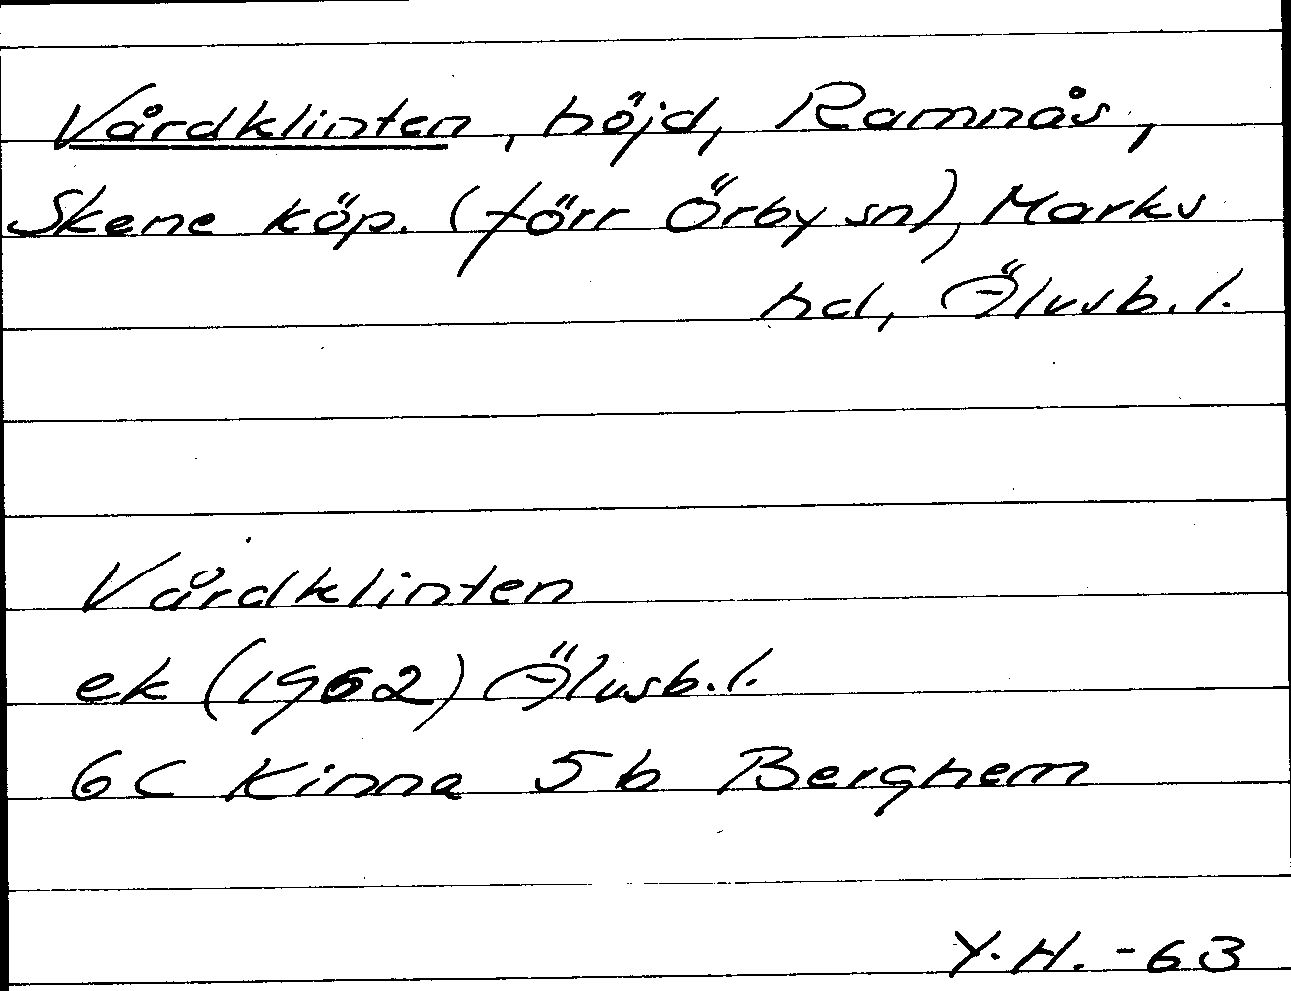 Vårdklinten, höjd, Ramnås,
Skene köp. (förr Örby sn), Marks
hd, Älvsb. l.
Vårdklinten
ek (1962) Älvsb. l.
6C Kinna 5b Berghem
Y.H. -63